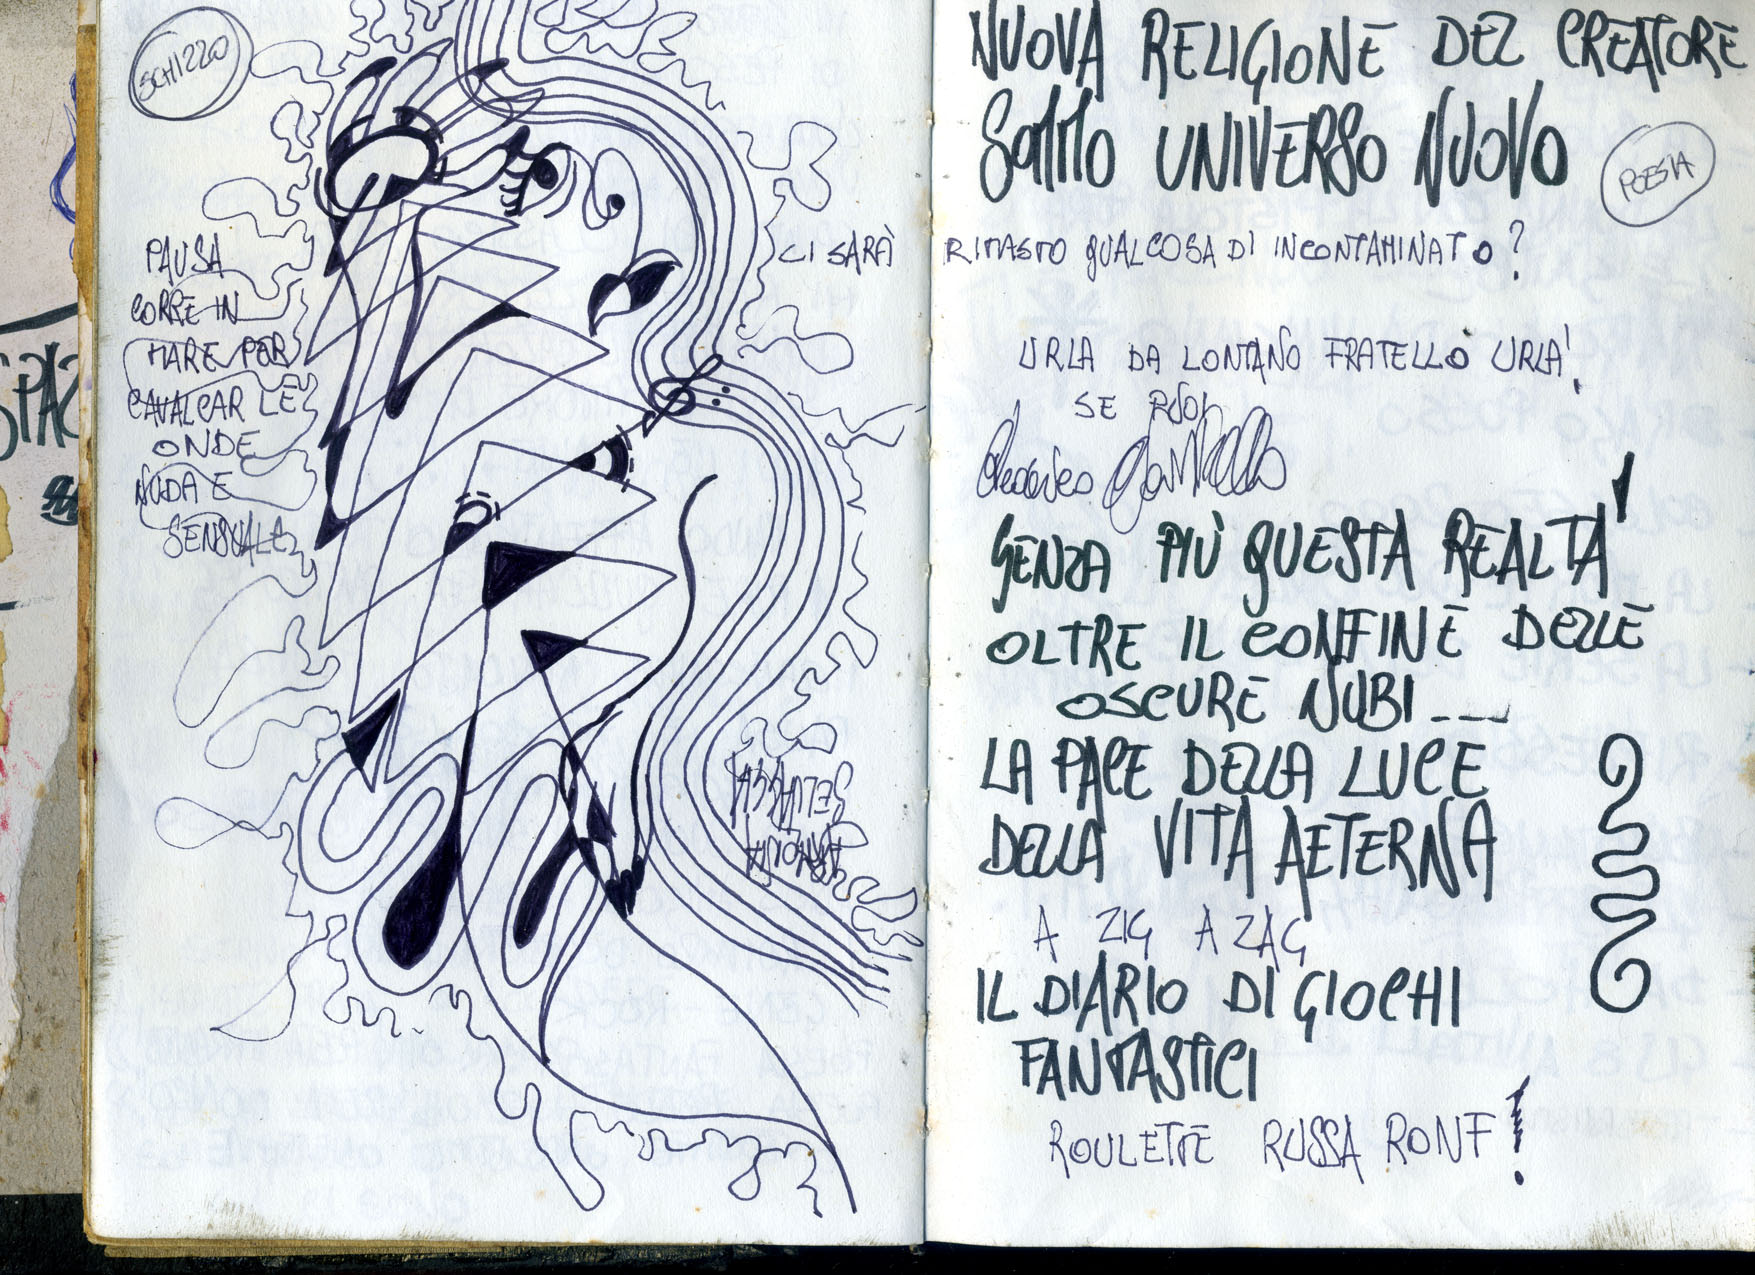 SCHIZZO
PAUSA
CORRE IN
MARE PER
CAVALCAR LE
ONDE
NUDA E
SENSUALE
SELVAGGIA
ARMONIA
NUOVA RELIGIONE DEL CREATORE
SOTTO UNIVERSO NUOVO
POESIA
CI SARÀ RIMASTO QUALCOSA DI INCONTAMINATO?
URLA DA LONTANO FRATELLO URLA'
SE PUOI
SENZA PIÙ QUESTA REALTA'
OLTRE IL CONFINE DELLE
OSCURE NUBI ---
LA PACE DELLA LUCE
DELLA VITA AETERNA
A ZIG A ZAG
IL DIARIO DI GIOCHI
FANTASTICI
ROULETTE RUSSA RONF!